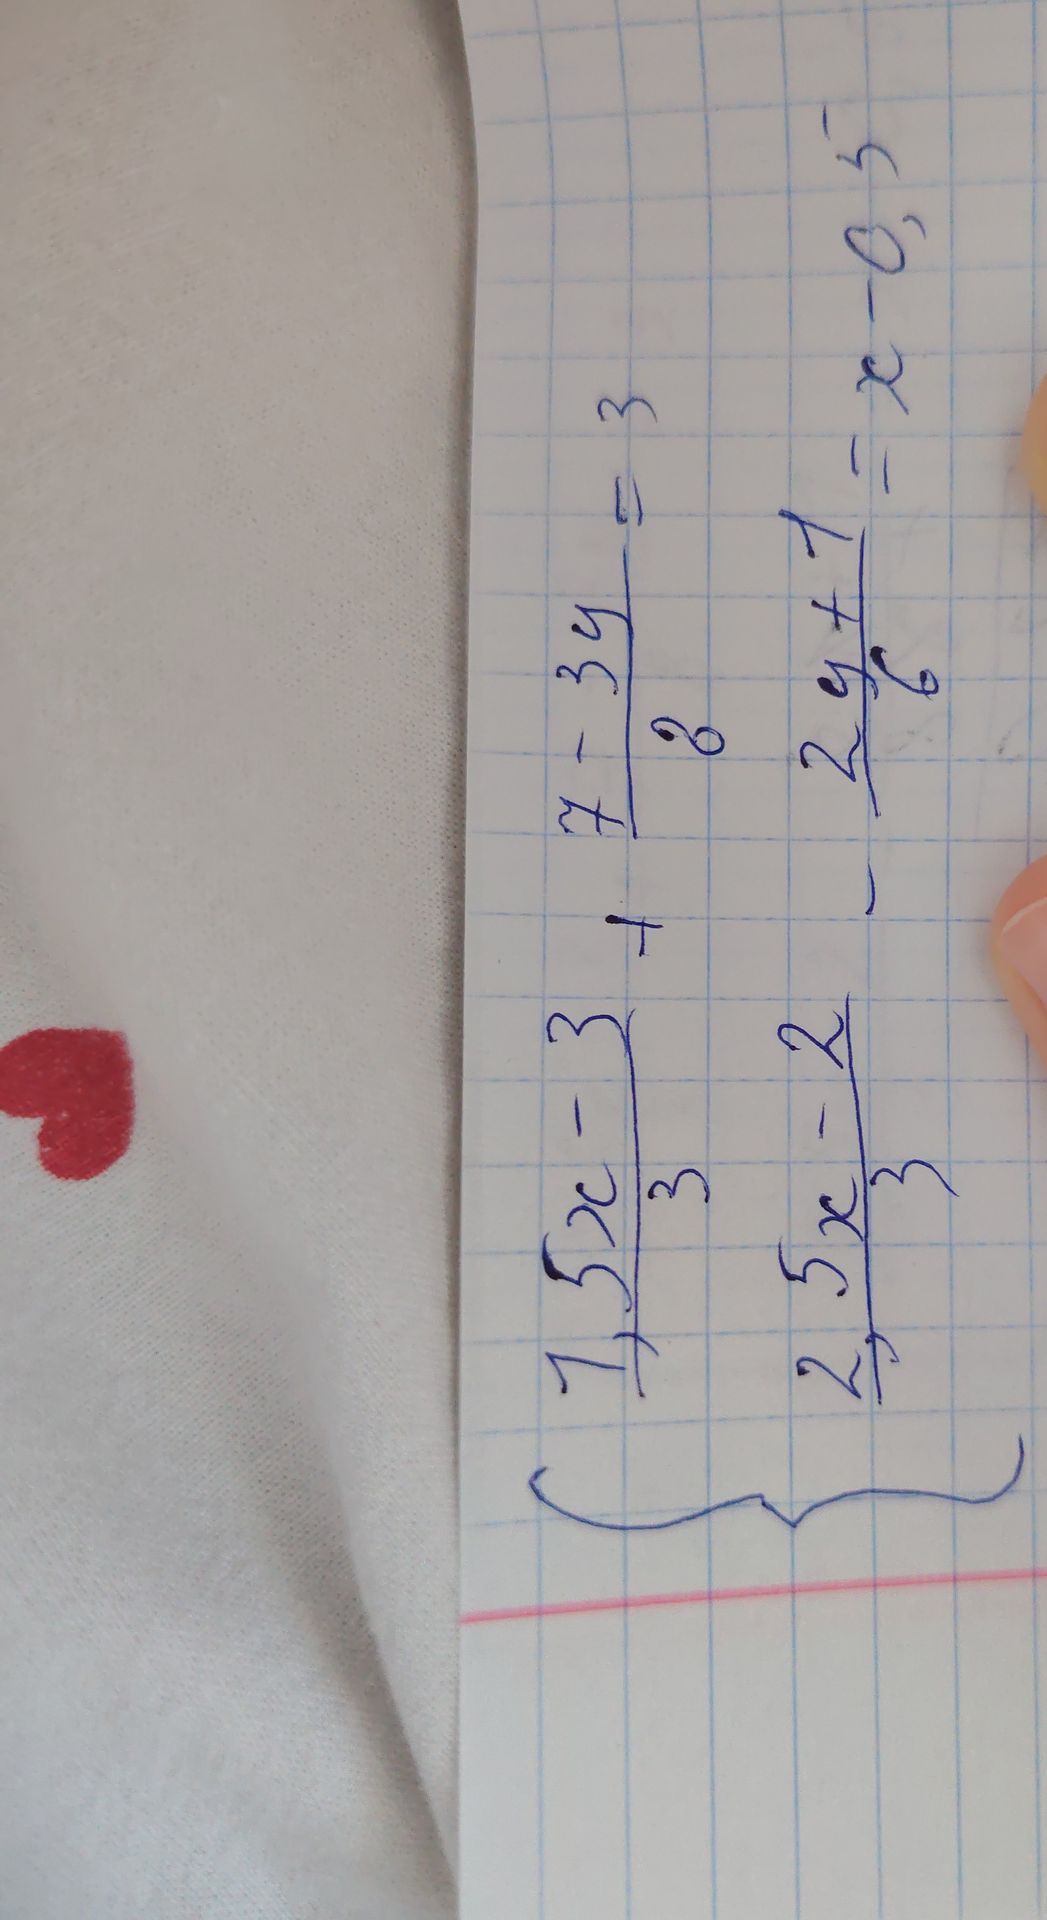 { (1,5x - 3)/3 + (7 - 3y)/8 = 3
(2,5x - 2)/3 - (2y + 1)/6 = x - 0,5